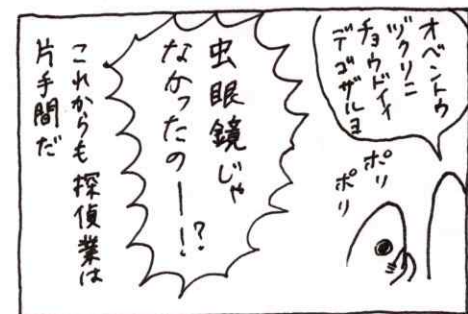 オベントウ
ヅクリニ
チョウドイイ
デゴザルヨ
ポリ
ポリ
虫眼鏡じゃ
なかったのー!?
これからも探偵業は
片手間だ